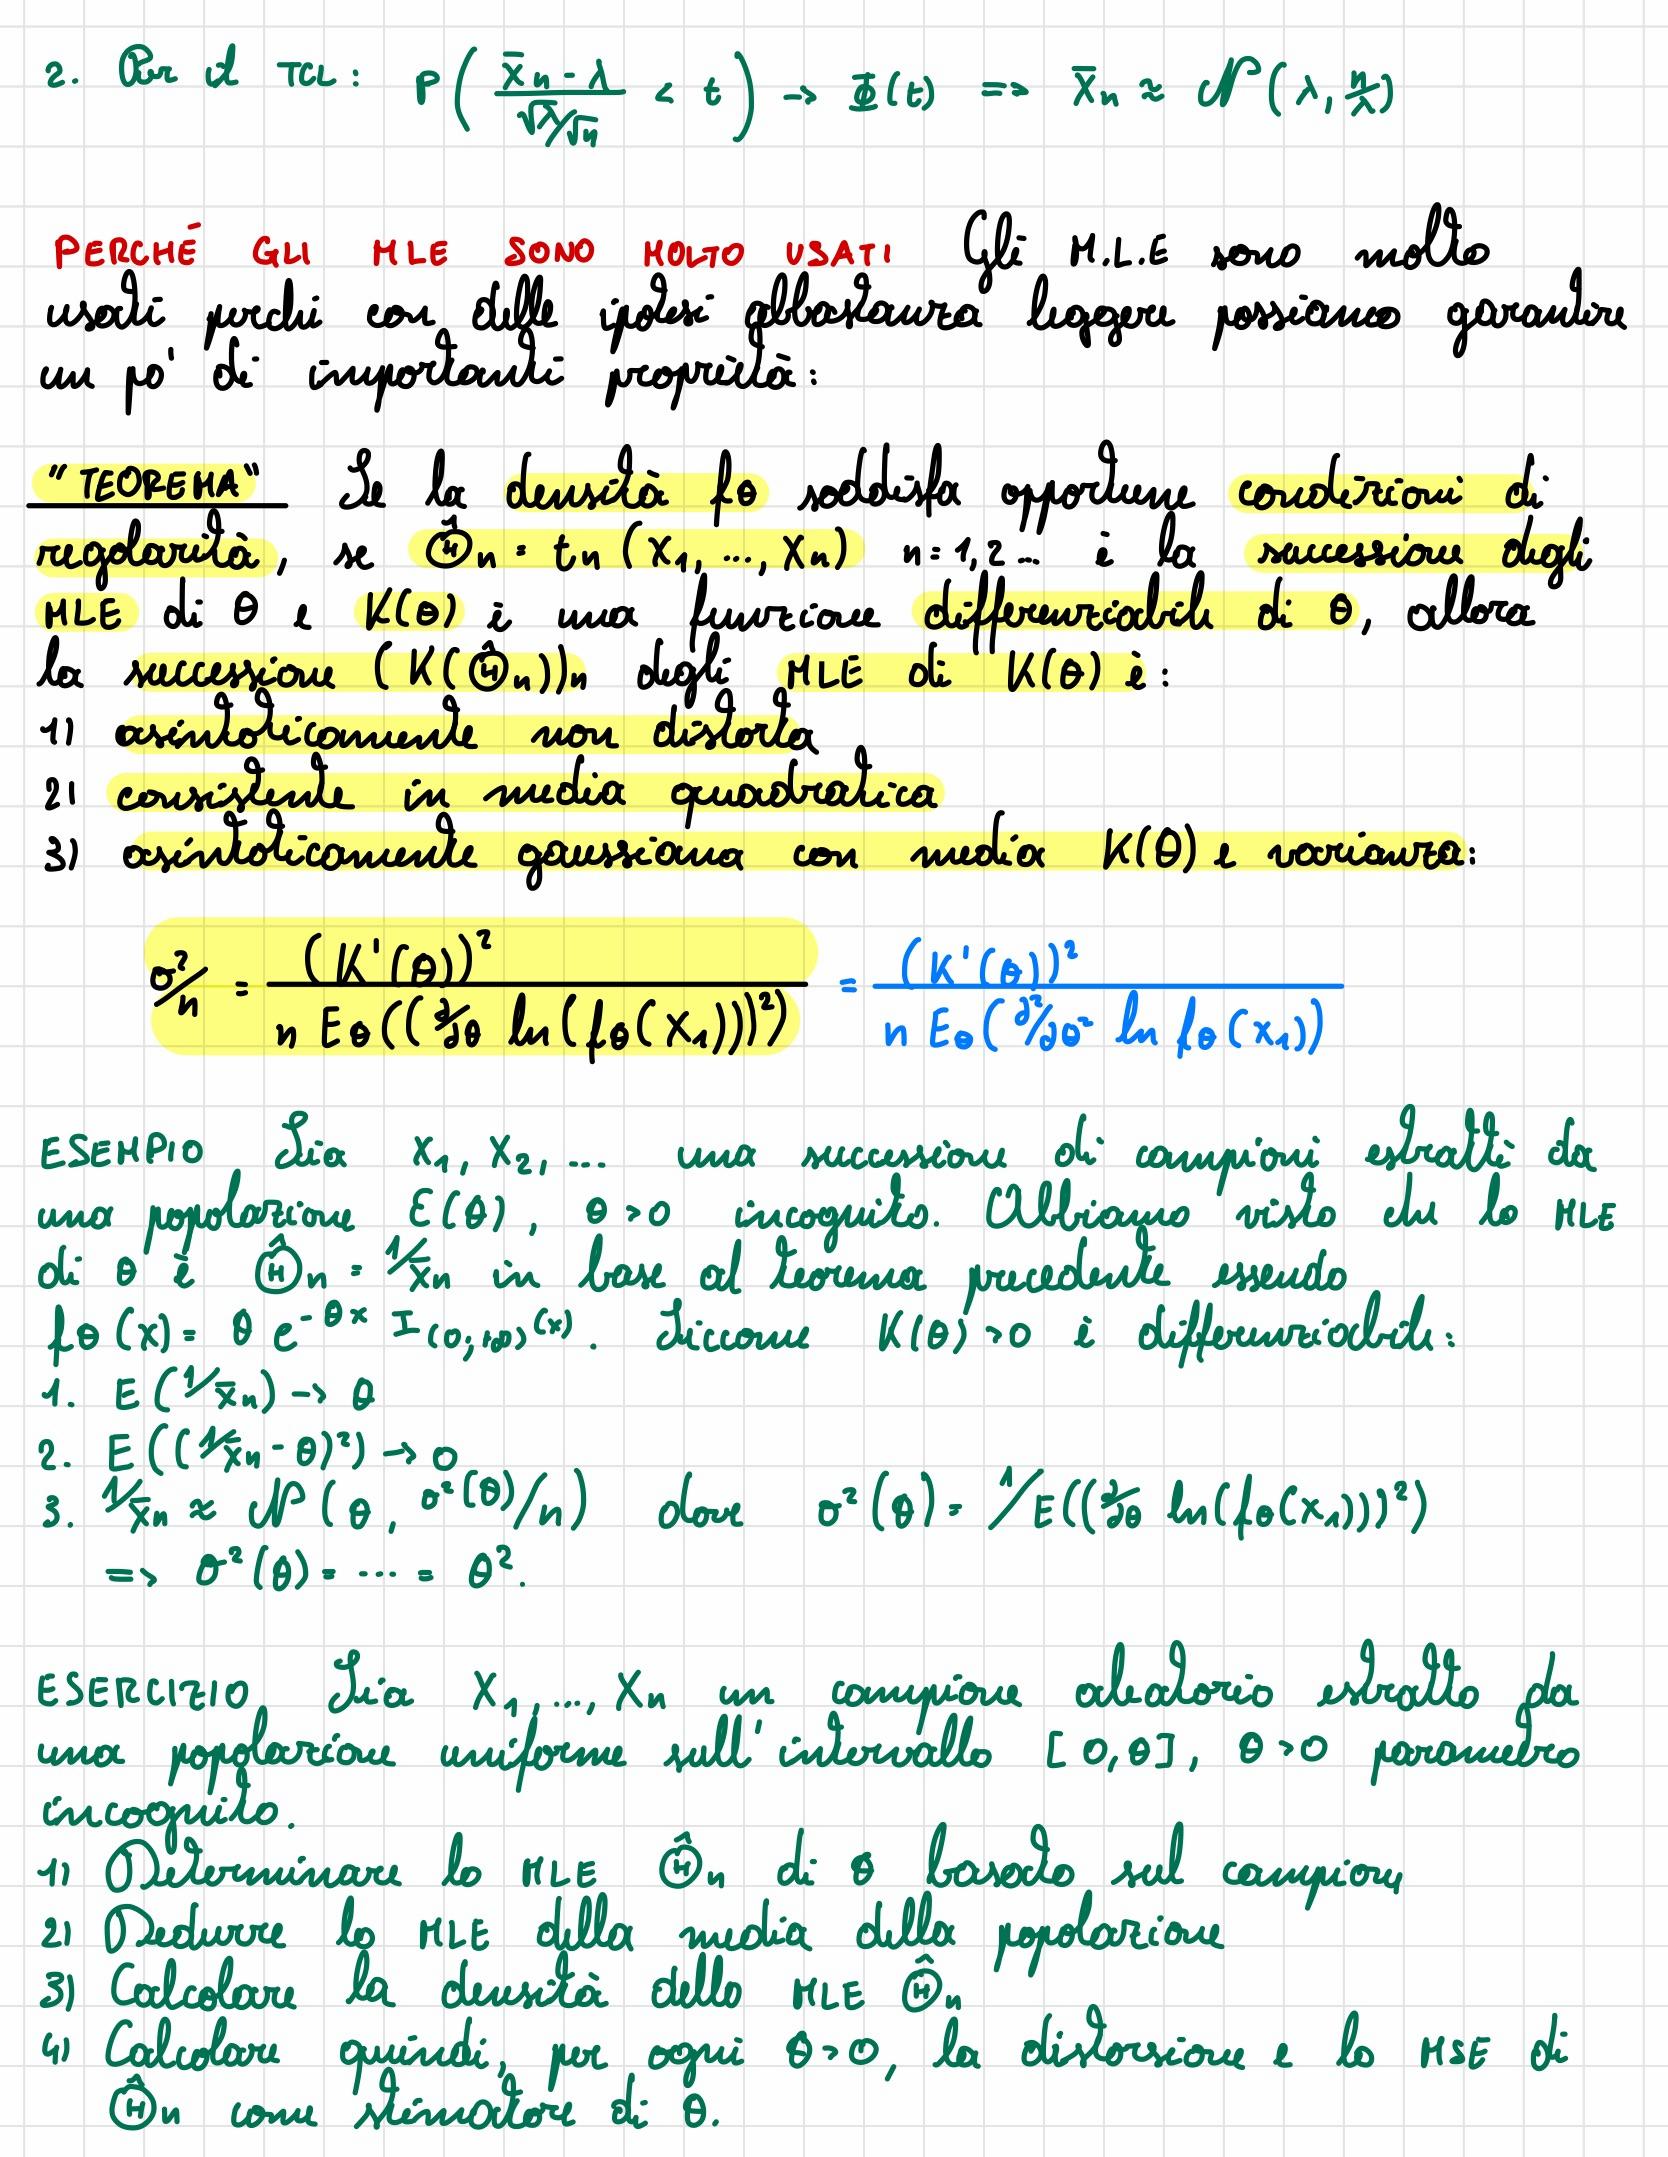 2. Per il TCL: P( (X̄n - λ)/(√λ/√n) < t ) → Φ(t) => X̄n ≈ N(λ, n/λ)
PERCHÉ GLI MLE SONO MOLTO USATI Gli M.L.E sono molto
usati perché con delle ipotesi abbastanza leggere possiamo garantire
un po' di importanti proprietà:
"TEOREMA" Se la densità fθ soddisfa opportune condizioni di
regolarità, se Θ̂n = tn (X1, ..., Xn) n=1,2... è la successione degli
MLE di θ e K(θ) è una funzione differenziabile di θ, allora
la successione (K(Θ̂n))n degli MLE di K(θ) è:
1) asintoticamente non distorta
2) consistente in media quadratica
3) asintoticamente gaussiana con media K(θ) e varianza:
σ²/n = (K'(θ))² / n Eθ((∂/∂θ ln(fθ(X1)))²) = (K'(θ))² / n Eθ(∂²/∂θ² ln fθ(X1))
ESEMPIO Sia X1, X2, ... una successione di campioni estratti da
una popolazione E(θ), θ>0 incognito. Abbiamo visto che lo MLE
di θ è Θ̂n = 1/X̄n in base al teorema precedente essendo
fθ(x) = θ e^-θx I(0;+∞)(x). Siccome K(θ)>0 è differenziabile:
1. E(1/X̄n) → θ
2. E((1/X̄n - θ)²) → 0
3. 1/X̄n ≈ N(θ, σ²(θ)/n) dove σ²(θ) = 1/E((∂/∂θ ln(fθ(X1)))²)
=> σ²(θ) = ... = θ².
ESERCIZIO Sia X1, ..., Xn un campione aleatorio estratto da
una popolazione uniforme sull'intervallo [0,θ], θ>0 parametro
incognito.
1) Determinare lo MLE Θ̂n di θ basato sul campione
2) Dedurre lo MLE della media della popolazione
3) Calcolare la densità dello MLE Θ̂n
4) Calcolare quindi, per ogni θ>0, la distorsione e lo MSE di
Θ̂n come stimatore di θ.